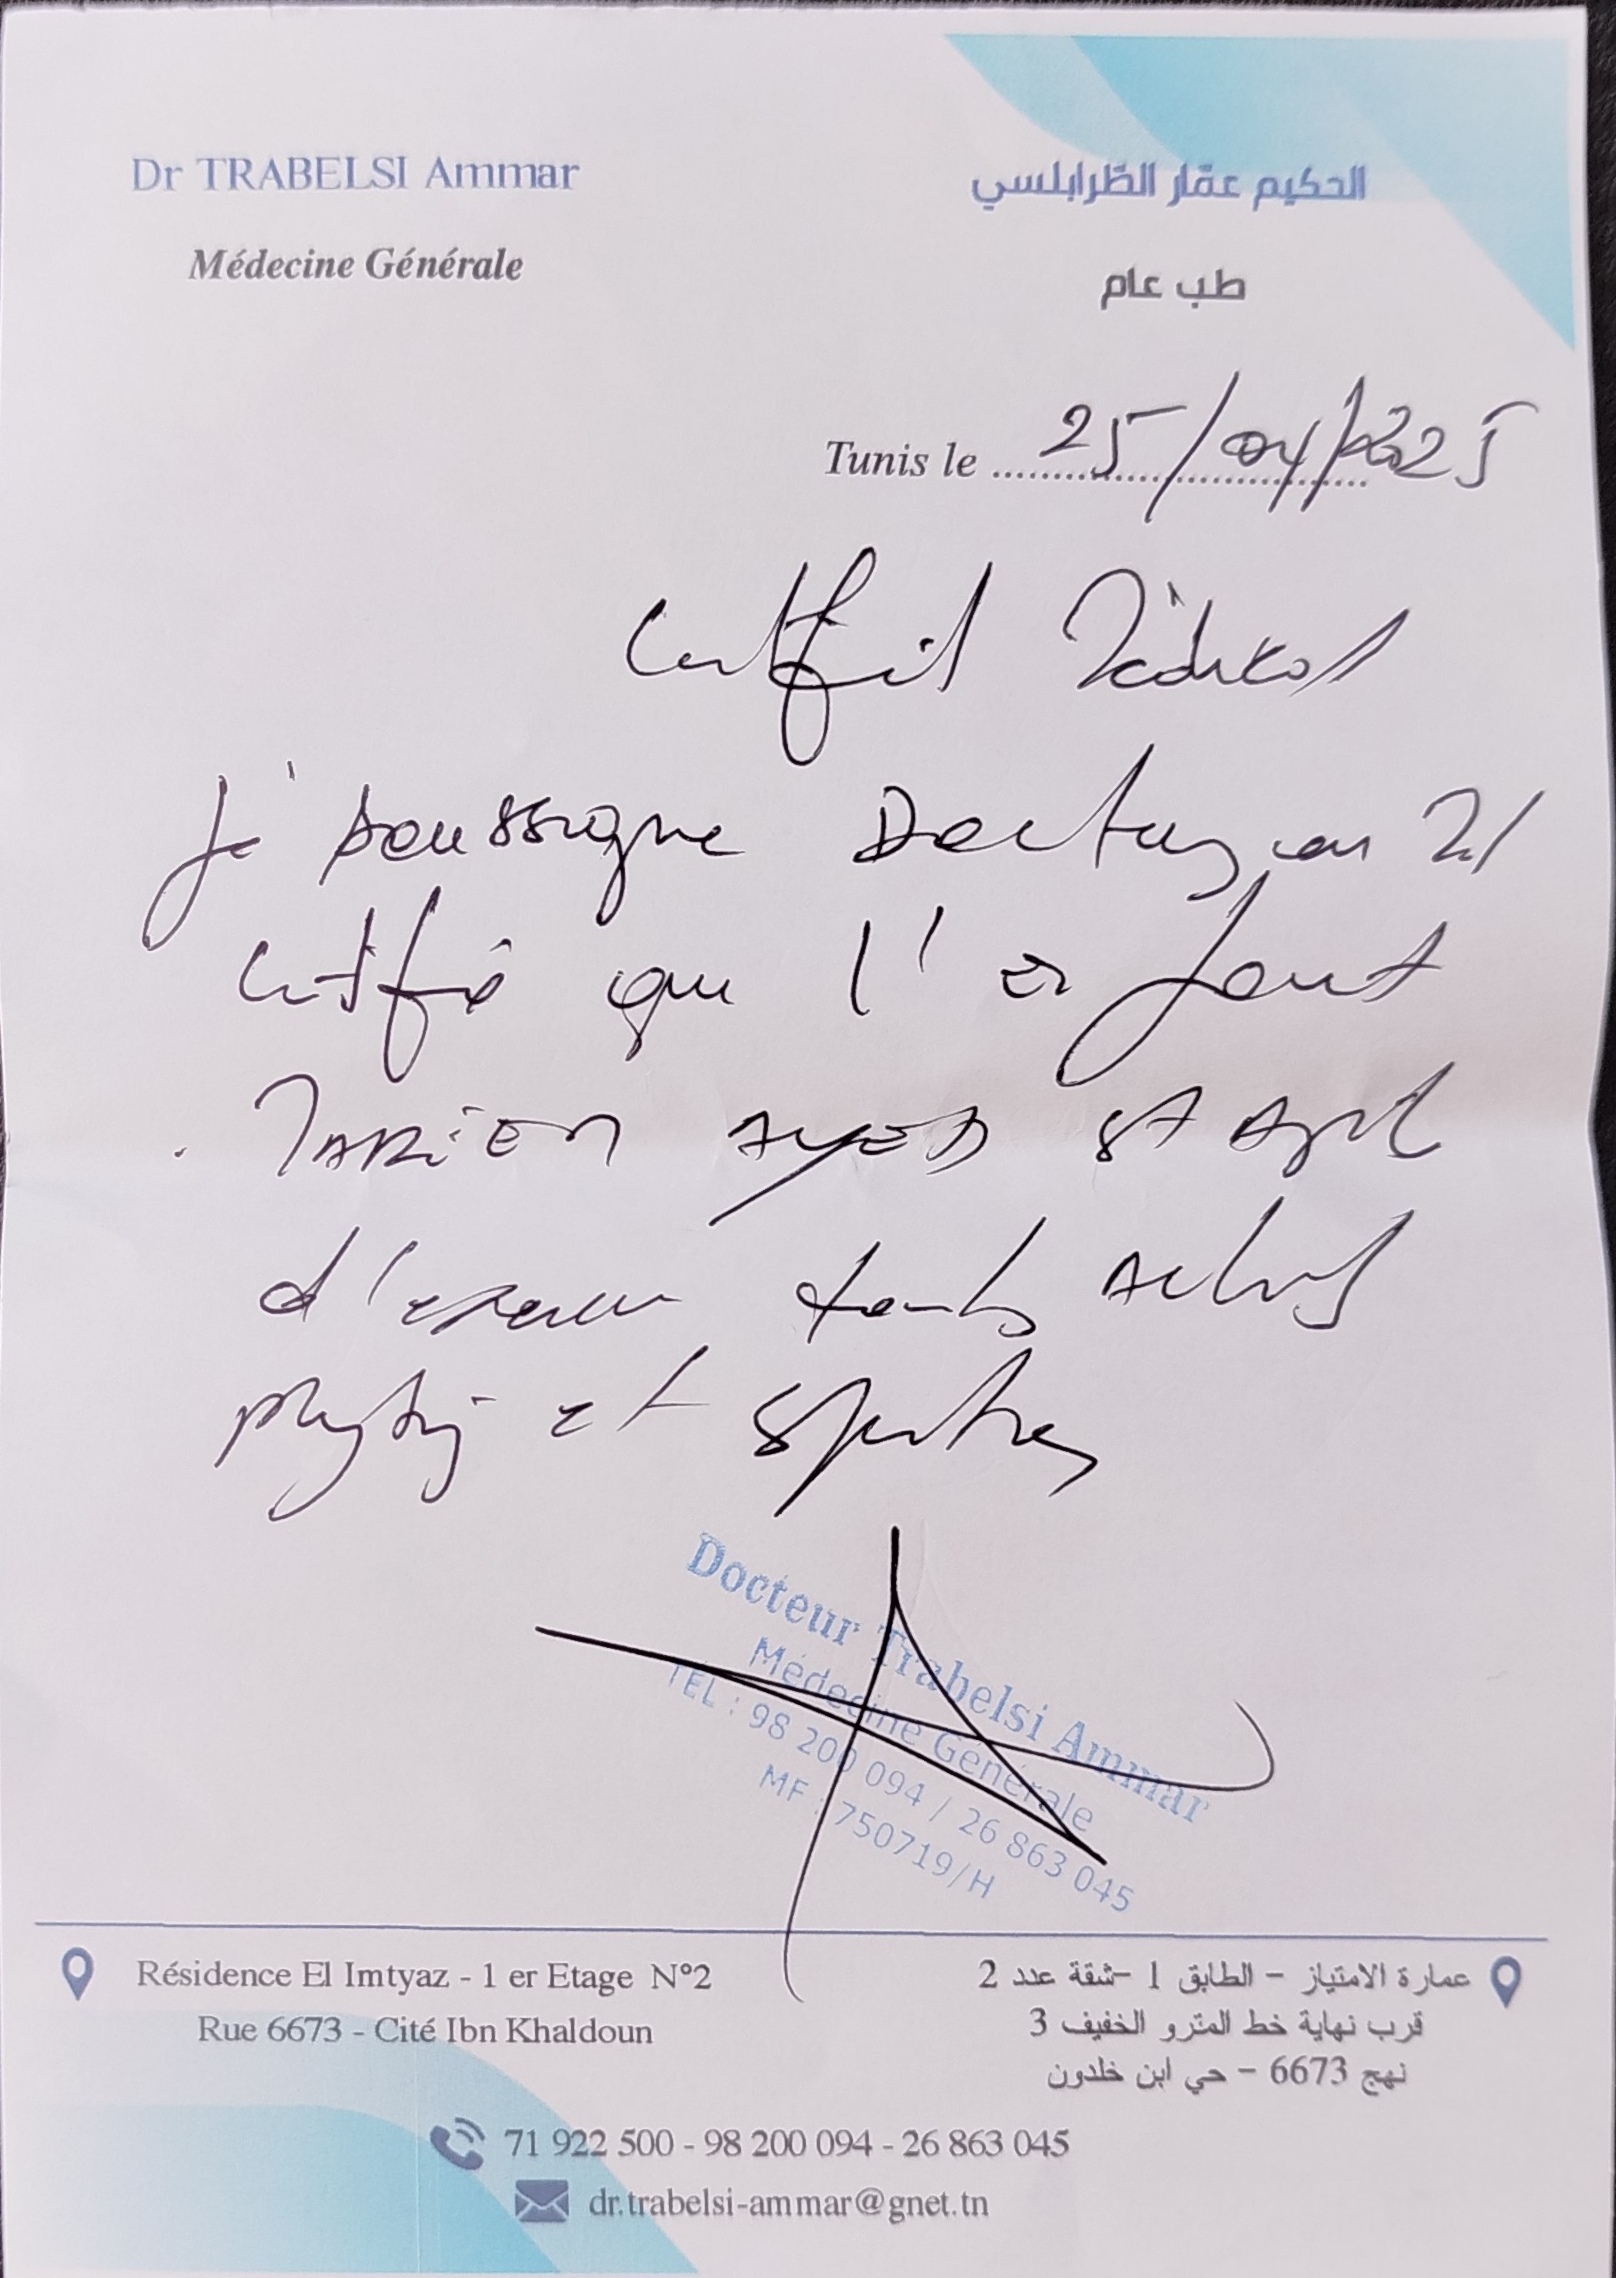 Dr TRABELSI Ammar
Médecine Générale
الحكيم عمّار الطّرابلسي
طب عام
Tunis le 25/04/2025
Certificat Médical
Je soussigné Docteur en
certifie que l'enfant
MARIEM AYED est apte
d'exercer toutes activités
physiq et sportives
Docteur Trabelsi Ammar
Médecine Générale
TEL : 98 200 094 / 26 863 045
MF : 750719/H
Résidence El Imtyaz - 1 er Etage N°2
Rue 6673 - Cité Ibn Khaldoun
عمارة الامتياز – الطابق 1 –شقة عدد 2
قرب نهاية خط المترو الخفيف 3
نهج 6673 – حي ابن خلدون
71 922 500 - 98 200 094 - 26 863 045
dr.trabelsi-ammar@gnet.tn